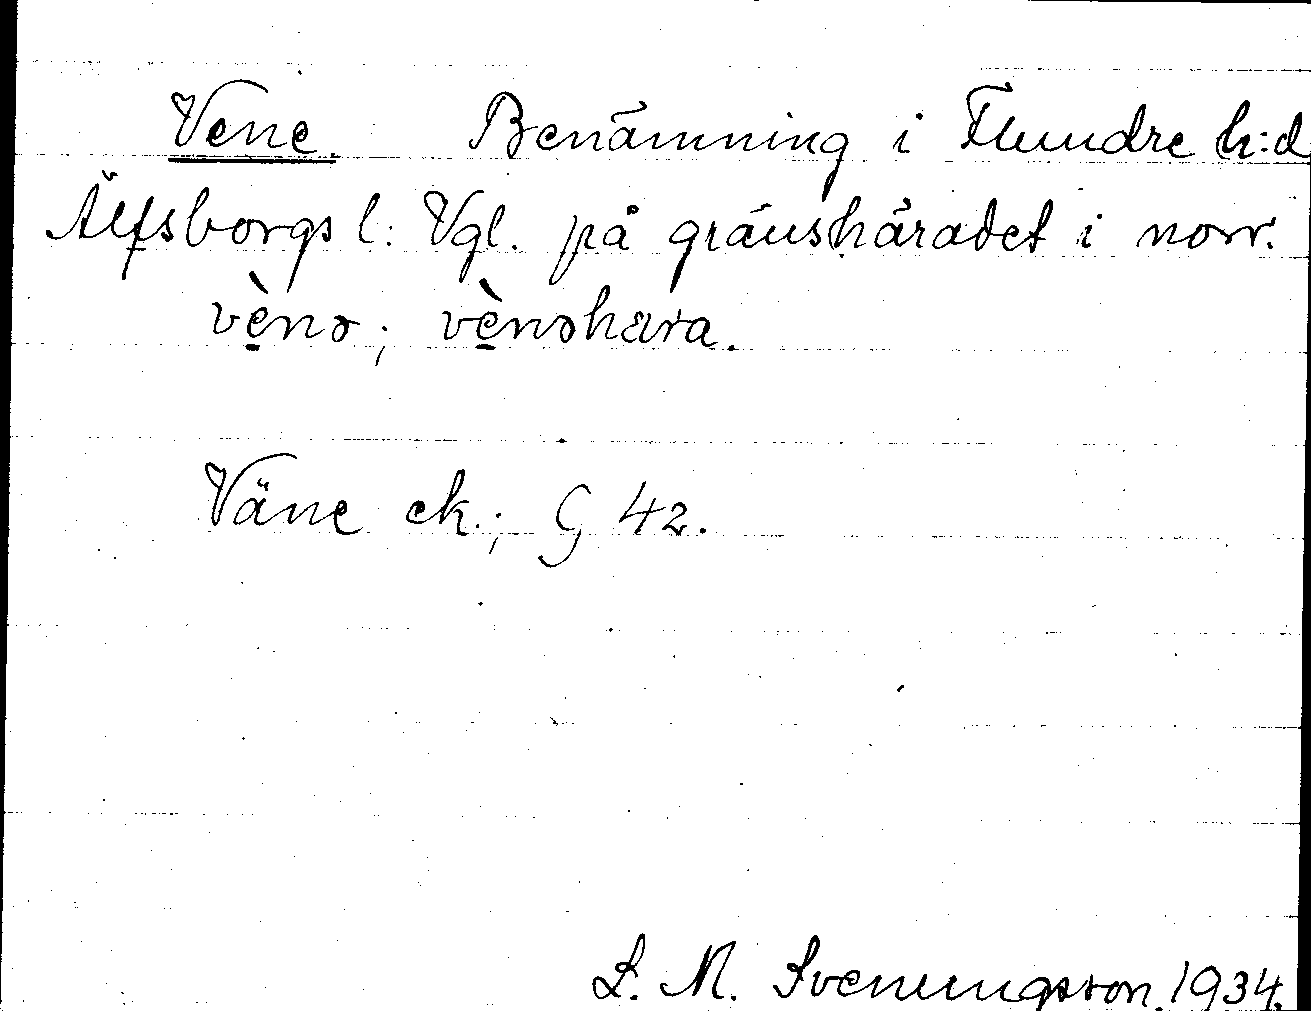 Vene. Benämning i Flundre h:d
Älfsborgs l: Vgl. på gränshäradet i norr.
vènə; vènəhæra.
Väne ek.; G 42.
L. M. Svenungsson. 1934.